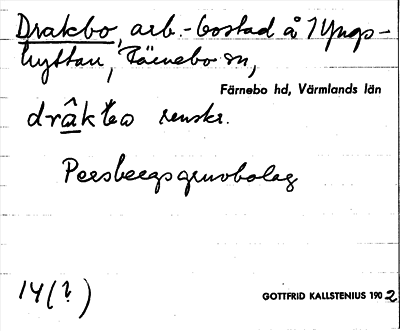 Drakbo, arb.-bostad å Yngs-
hyttan, Färnebo sn,
Färnebo hd, Värmlands län
drâkbo renskr.
Persbergs gruvbolag
14(?)
GOTTFRID KALLSTENIUS 1902